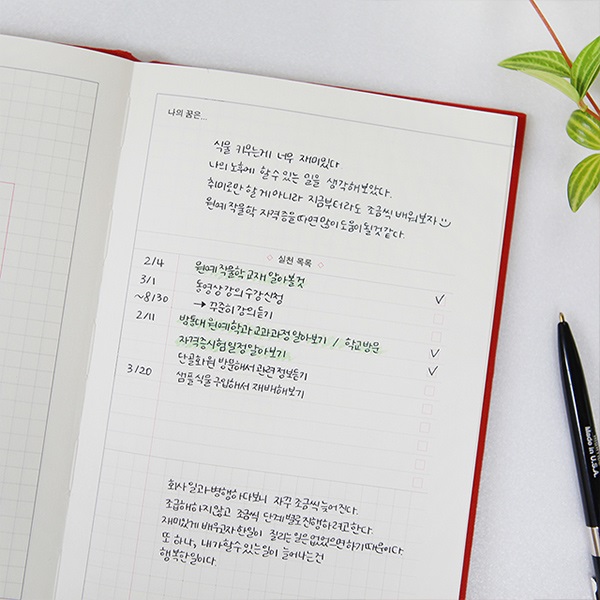 나의 꿈은...
식물 키우는게 너무 재미있다
나의 노후에 할 수 있는 일을 생각해보았다.
취미로만 할 게 아니라 지금부터라도 조금씩 배워보자
원예작물학 자격증을 따면 많이 도움이 될 것 같다.
실천 목록
2/4 원예작물학 교재 알아볼것
3/1 동영상강의 수강신청
~8/30 → 꾸준히 강의듣기
2/11 방통대 원예학과 교과과정 알아보기 / 학교방문
자격증시험일정 알아보기
단골화원 방문해서 관련정보듣기
3/20 샘플식물 구입해서 재배해보기
회사일과 병행하다보니 자꾸 조금씩 늦어진다.
조급해하지않고 조금씩 단계별로 진행하려고한다.
재미있게 배우고자 한일이 질리는일은 없었으면하기 때문이다.
또 하나, 내가 할 수 있는 일이 늘어나는건
행복한일이다.
Made in U.S.A.